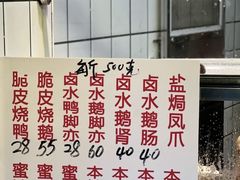 500克
脆皮烧鸭
28
脆皮烧鹅
55
卤水鸭脚亦
28
卤水鹅脚亦
60
卤水鹅肾
40
卤水鹅肠
40
盐焗凤爪
蜜
蜜
蜜
本
本
本
本